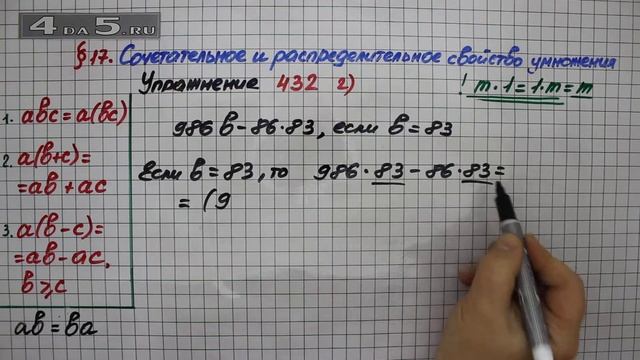 4DA5.RU
§17. Сочетательное и распределительное свойство умножения
Упражнение 432 г)
! m·1=1·m=m
1. abc=a(bc)
2. a(b+c)=
=ab+ac
3. a(b-c)=
=ab-ac,
b⩾c
ab=ba
986b-86·83, если b=83
Если b=83, то 986·83-86·83=
= (9